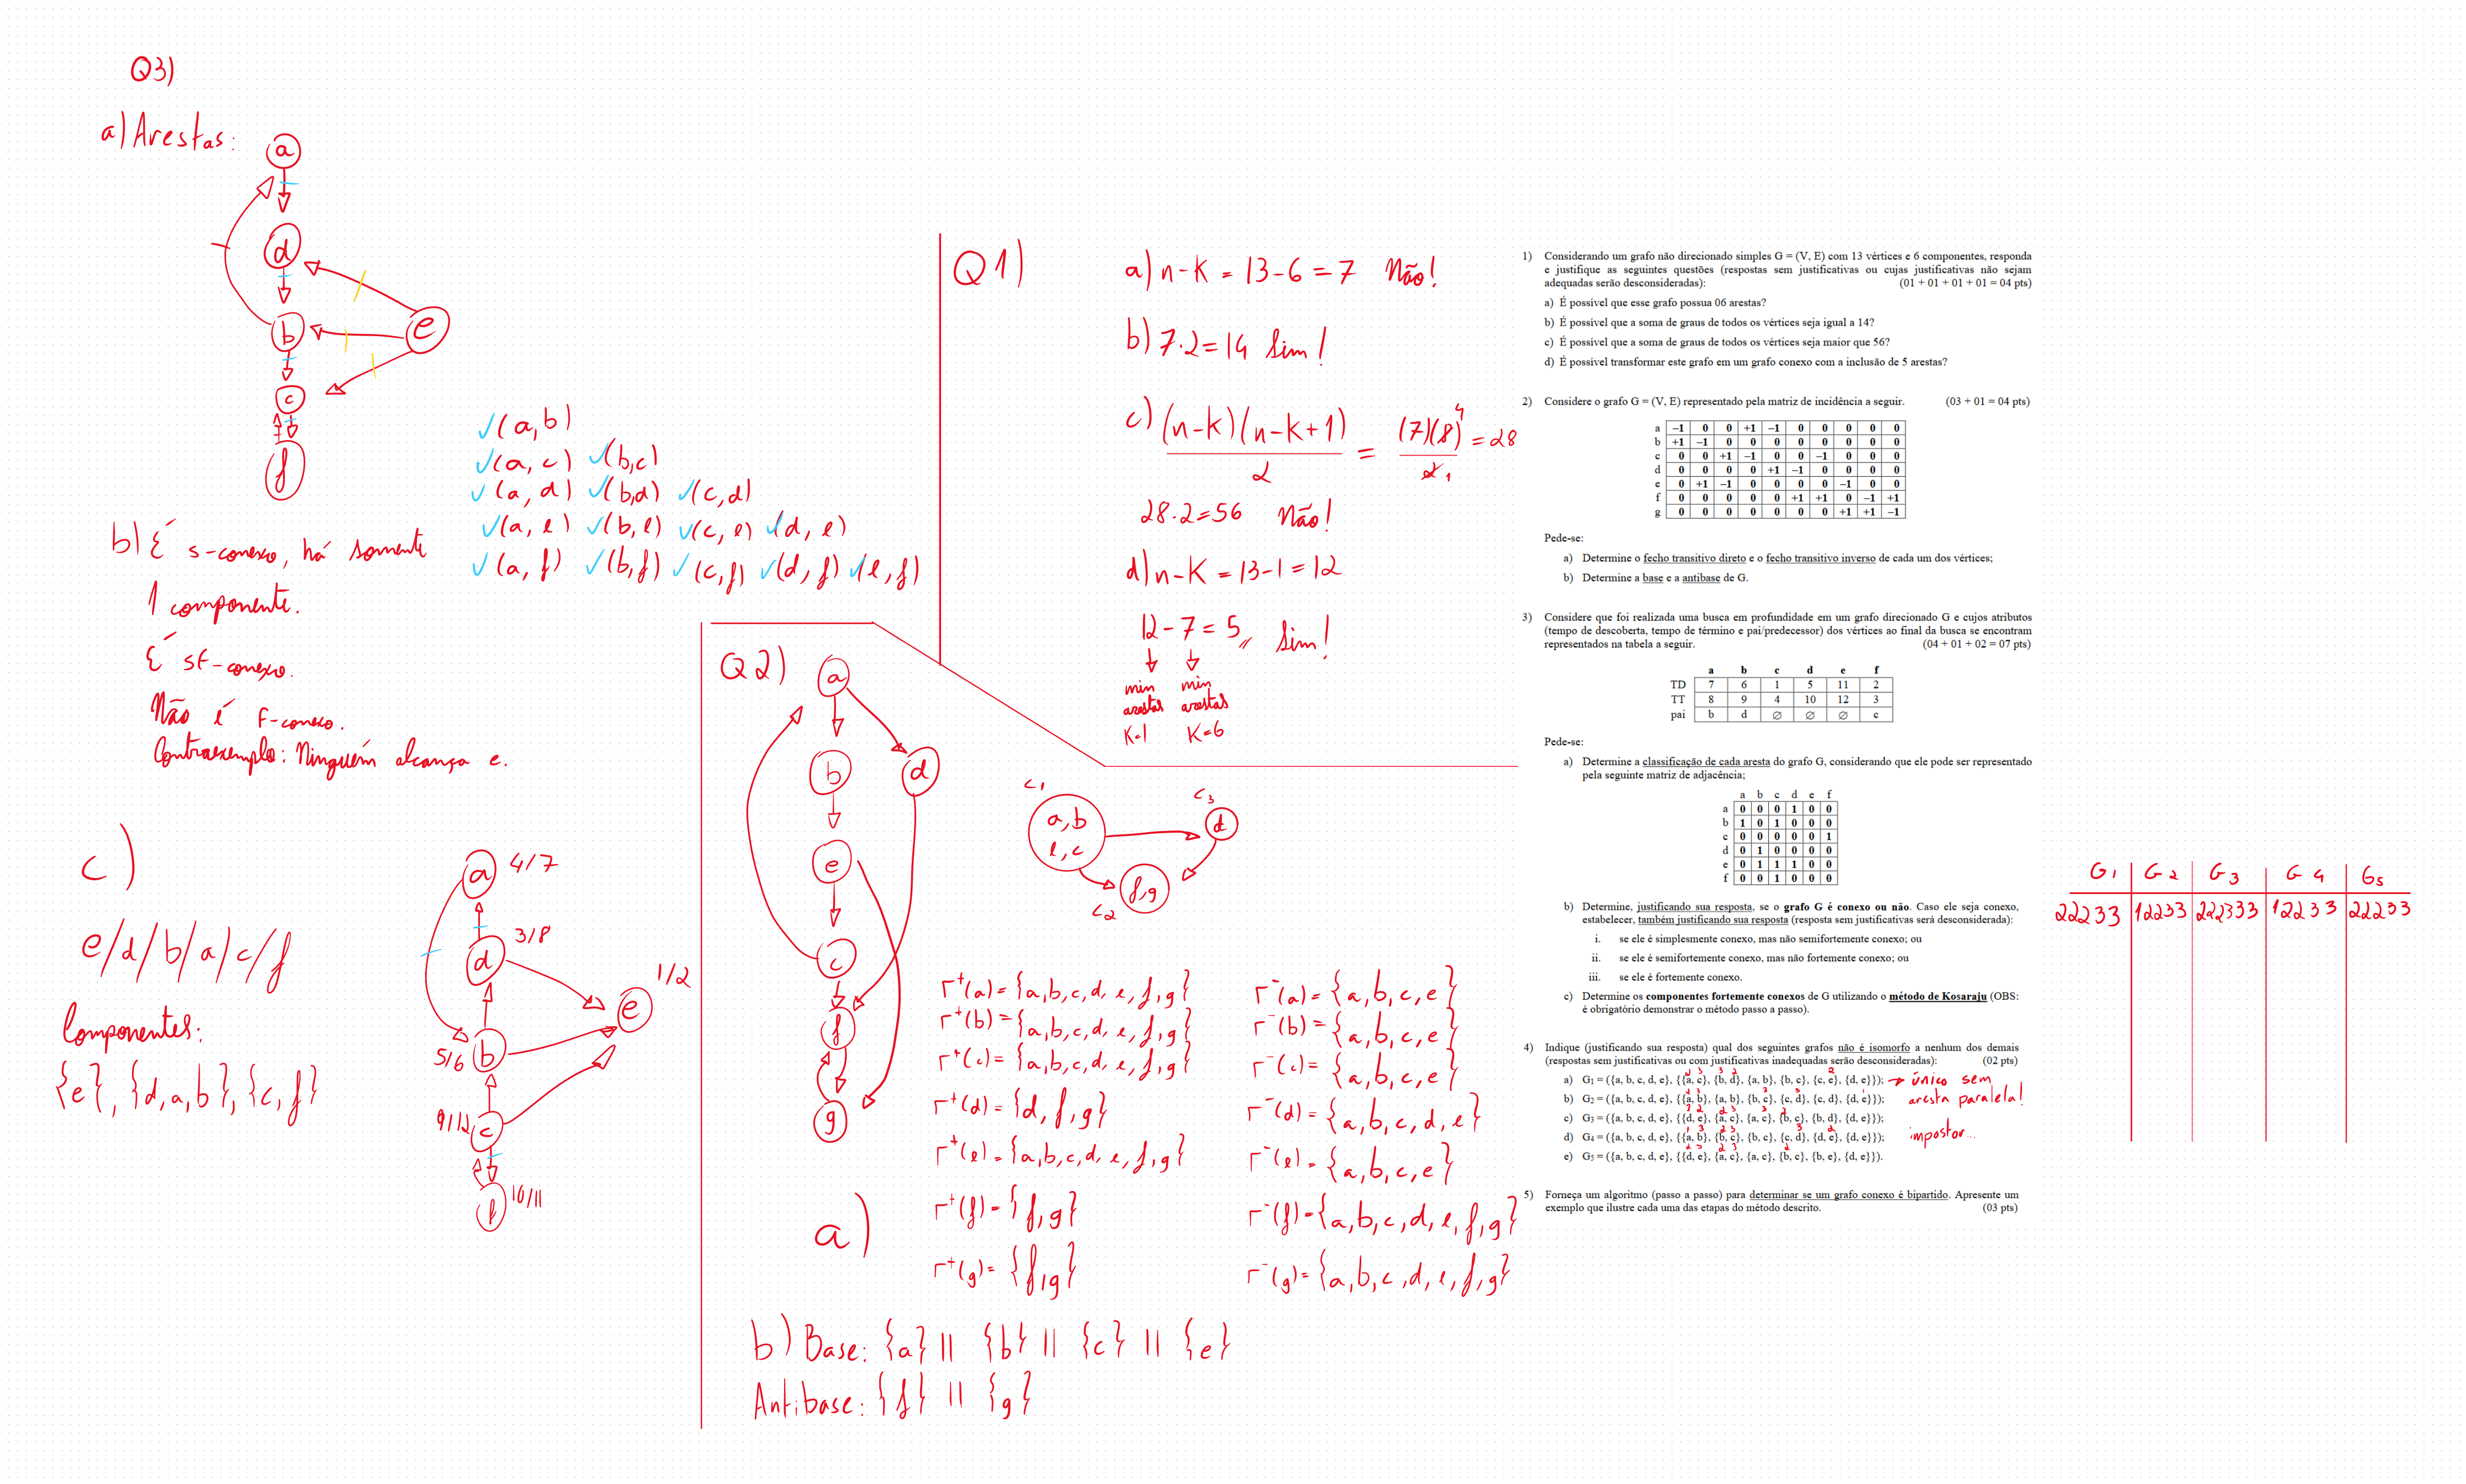 Q3)
a) Arestas:
a
d
b
e
c
f
✓(a,b)
✓(a,c) ✓(b,c)
✓(a,d) ✓(b,d) ✓(c,d)
✓(a,e) ✓(b,e) ✓(c,e) ✓(d,e)
✓(a,f) ✓(b,f) ✓(c,f) ✓(d,f) ✓(e,f)
b) É s-conexo, há somente
1 componente.
É sf-conexo.
Não é f-conexo.
Contraexemplo: Ninguém alcança e.
c)
e/d/b/a/c/f
Componentes:
{e}, {d,a,b}, {c,f}
a 4/7
d 3/8
e 1/2
5/6 b
9/12 c
f 10/11
Q1)
a) n-K = 13-6 = 7 Não!
b) 7.2=14 Sim!
c) (n-K)(n-K+1)/2 = (7)(8)/2 = 28
4
1
28.2=56 Não!
d) n-K = 13-1 = 12
12-7=5 Sim!
min min
arestas arestas
K=1 K=6
Q2)
a
b d
e
c
f
g
C1
a,b
e,c
C3
d
f,g
C2
Γ+(a)={a,b,c,d,e,f,g} Γ-(a)={a,b,c,e}
Γ+(b)={a,b,c,d,e,f,g} Γ-(b)={a,b,c,e}
Γ+(c)={a,b,c,d,e,f,g} Γ-(c)={a,b,c,e}
Γ+(d)={d,f,g} Γ-(d)={a,b,c,d,e}
Γ+(e)={a,b,c,d,e,f,g} Γ-(e)={a,b,c,e}
a)
Γ+(f)={f,g} Γ-(f)={a,b,c,d,e,f,g}
Γ+(g)={f,g} Γ-(g)={a,b,c,d,e,f,g}
b) Base: {a} || {b} || {c} || {e}
Antibase: {f} || {g}
1) Considerando um grafo não direcionado simples G = (V, E) com 13 vértices e 6 componentes, responda
e justifique as seguintes questões (respostas sem justificativas ou cujas justificativas não sejam
adequadas serão desconsideradas): (01 + 01 + 01 + 01 = 04 pts)
a) É possível que esse grafo possua 06 arestas?
b) É possível que a soma de graus de todos os vértices seja igual a 14?
c) É possível que a soma de graus de todos os vértices seja maior que 56?
d) É possível transformar este grafo em um grafo conexo com a inclusão de 5 arestas?
2) Considere o grafo G = (V, E) representado pela matriz de incidência a seguir. (03 + 01 = 04 pts)
a −1 0 0 +1 −1 0 0 0 0 0
b +1 −1 0 0 0 0 0 0 0 0
c 0 0 +1 −1 0 0 −1 0 0 0
d 0 0 0 0 +1 −1 0 0 0 0
e 0 +1 −1 0 0 0 0 −1 0 0
f 0 0 0 0 0 +1 +1 0 −1 +1
g 0 0 0 0 0 0 0 +1 +1 −1
Pede-se:
a) Determine o fecho transitivo direto e o fecho transitivo inverso de cada um dos vértices;
b) Determine a base e a antibase de G.
3) Considere que foi realizada uma busca em profundidade em um grafo direcionado G e cujos atributos
(tempo de descoberta, tempo de término e pai/predecessor) dos vértices ao final da busca se encontram
representados na tabela a seguir. (04 + 01 + 02 = 07 pts)
a b c d e f
TD 7 6 1 5 11 2
TT 8 9 4 10 12 3
pai b d ∅ ∅ ∅ c
Pede-se:
a) Determine a classificação de cada aresta do grafo G, considerando que ele pode ser representado
pela seguinte matriz de adjacência;
a b c d e f
a 0 0 0 1 0 0
b 1 0 1 0 0 0
c 0 0 0 0 0 1
d 0 1 0 0 0 0
e 0 1 1 1 0 0
f 0 0 1 0 0 0
b) Determine, justificando sua resposta, se o grafo G é conexo ou não. Caso ele seja conexo,
estabelecer, também justificando sua resposta (resposta sem justificativas será desconsiderada):
i. se ele é simplesmente conexo, mas não semifortemente conexo; ou
ii. se ele é semifortemente conexo, mas não fortemente conexo; ou
iii. se ele é fortemente conexo.
c) Determine os componentes fortemente conexos de G utilizando o método de Kosaraju (OBS:
é obrigatório demonstrar o método passo a passo).
4) Indique (justificando sua resposta) qual dos seguintes grafos não é isomorfo a nenhum dos demais
(respostas sem justificativas ou com justificativas inadequadas serão desconsideradas): (02 pts)
a) G1 = ({a, b, c, d, e}, {{a, c}, {b, d}, {a, b}, {b, c}, {c, e}, {d, e}}); → único sem
b) G2 = ({a, b, c, d, e}, {{a, b}, {a, b}, {b, c}, {c, d}, {c, d}, {d, e}}); aresta paralela!
c) G3 = ({a, b, c, d, e}, {{d, e}, {a, c}, {a, c}, {b, c}, {b, d}, {d, e}});
d) G4 = ({a, b, c, d, e}, {{a, b}, {b, c}, {b, c}, {c, d}, {d, e}, {d, e}}); impostor...
e) G5 = ({a, b, c, d, e}, {{d, e}, {a, c}, {a, c}, {b, c}, {b, e}, {d, e}}).
5) Forneça um algoritmo (passo a passo) para determinar se um grafo conexo é bipartido. Apresente um
exemplo que ilustre cada uma das etapas do método descrito. (03 pts)
G1 G2 G3 G4 G5
22233 12233 222333 12233 22233